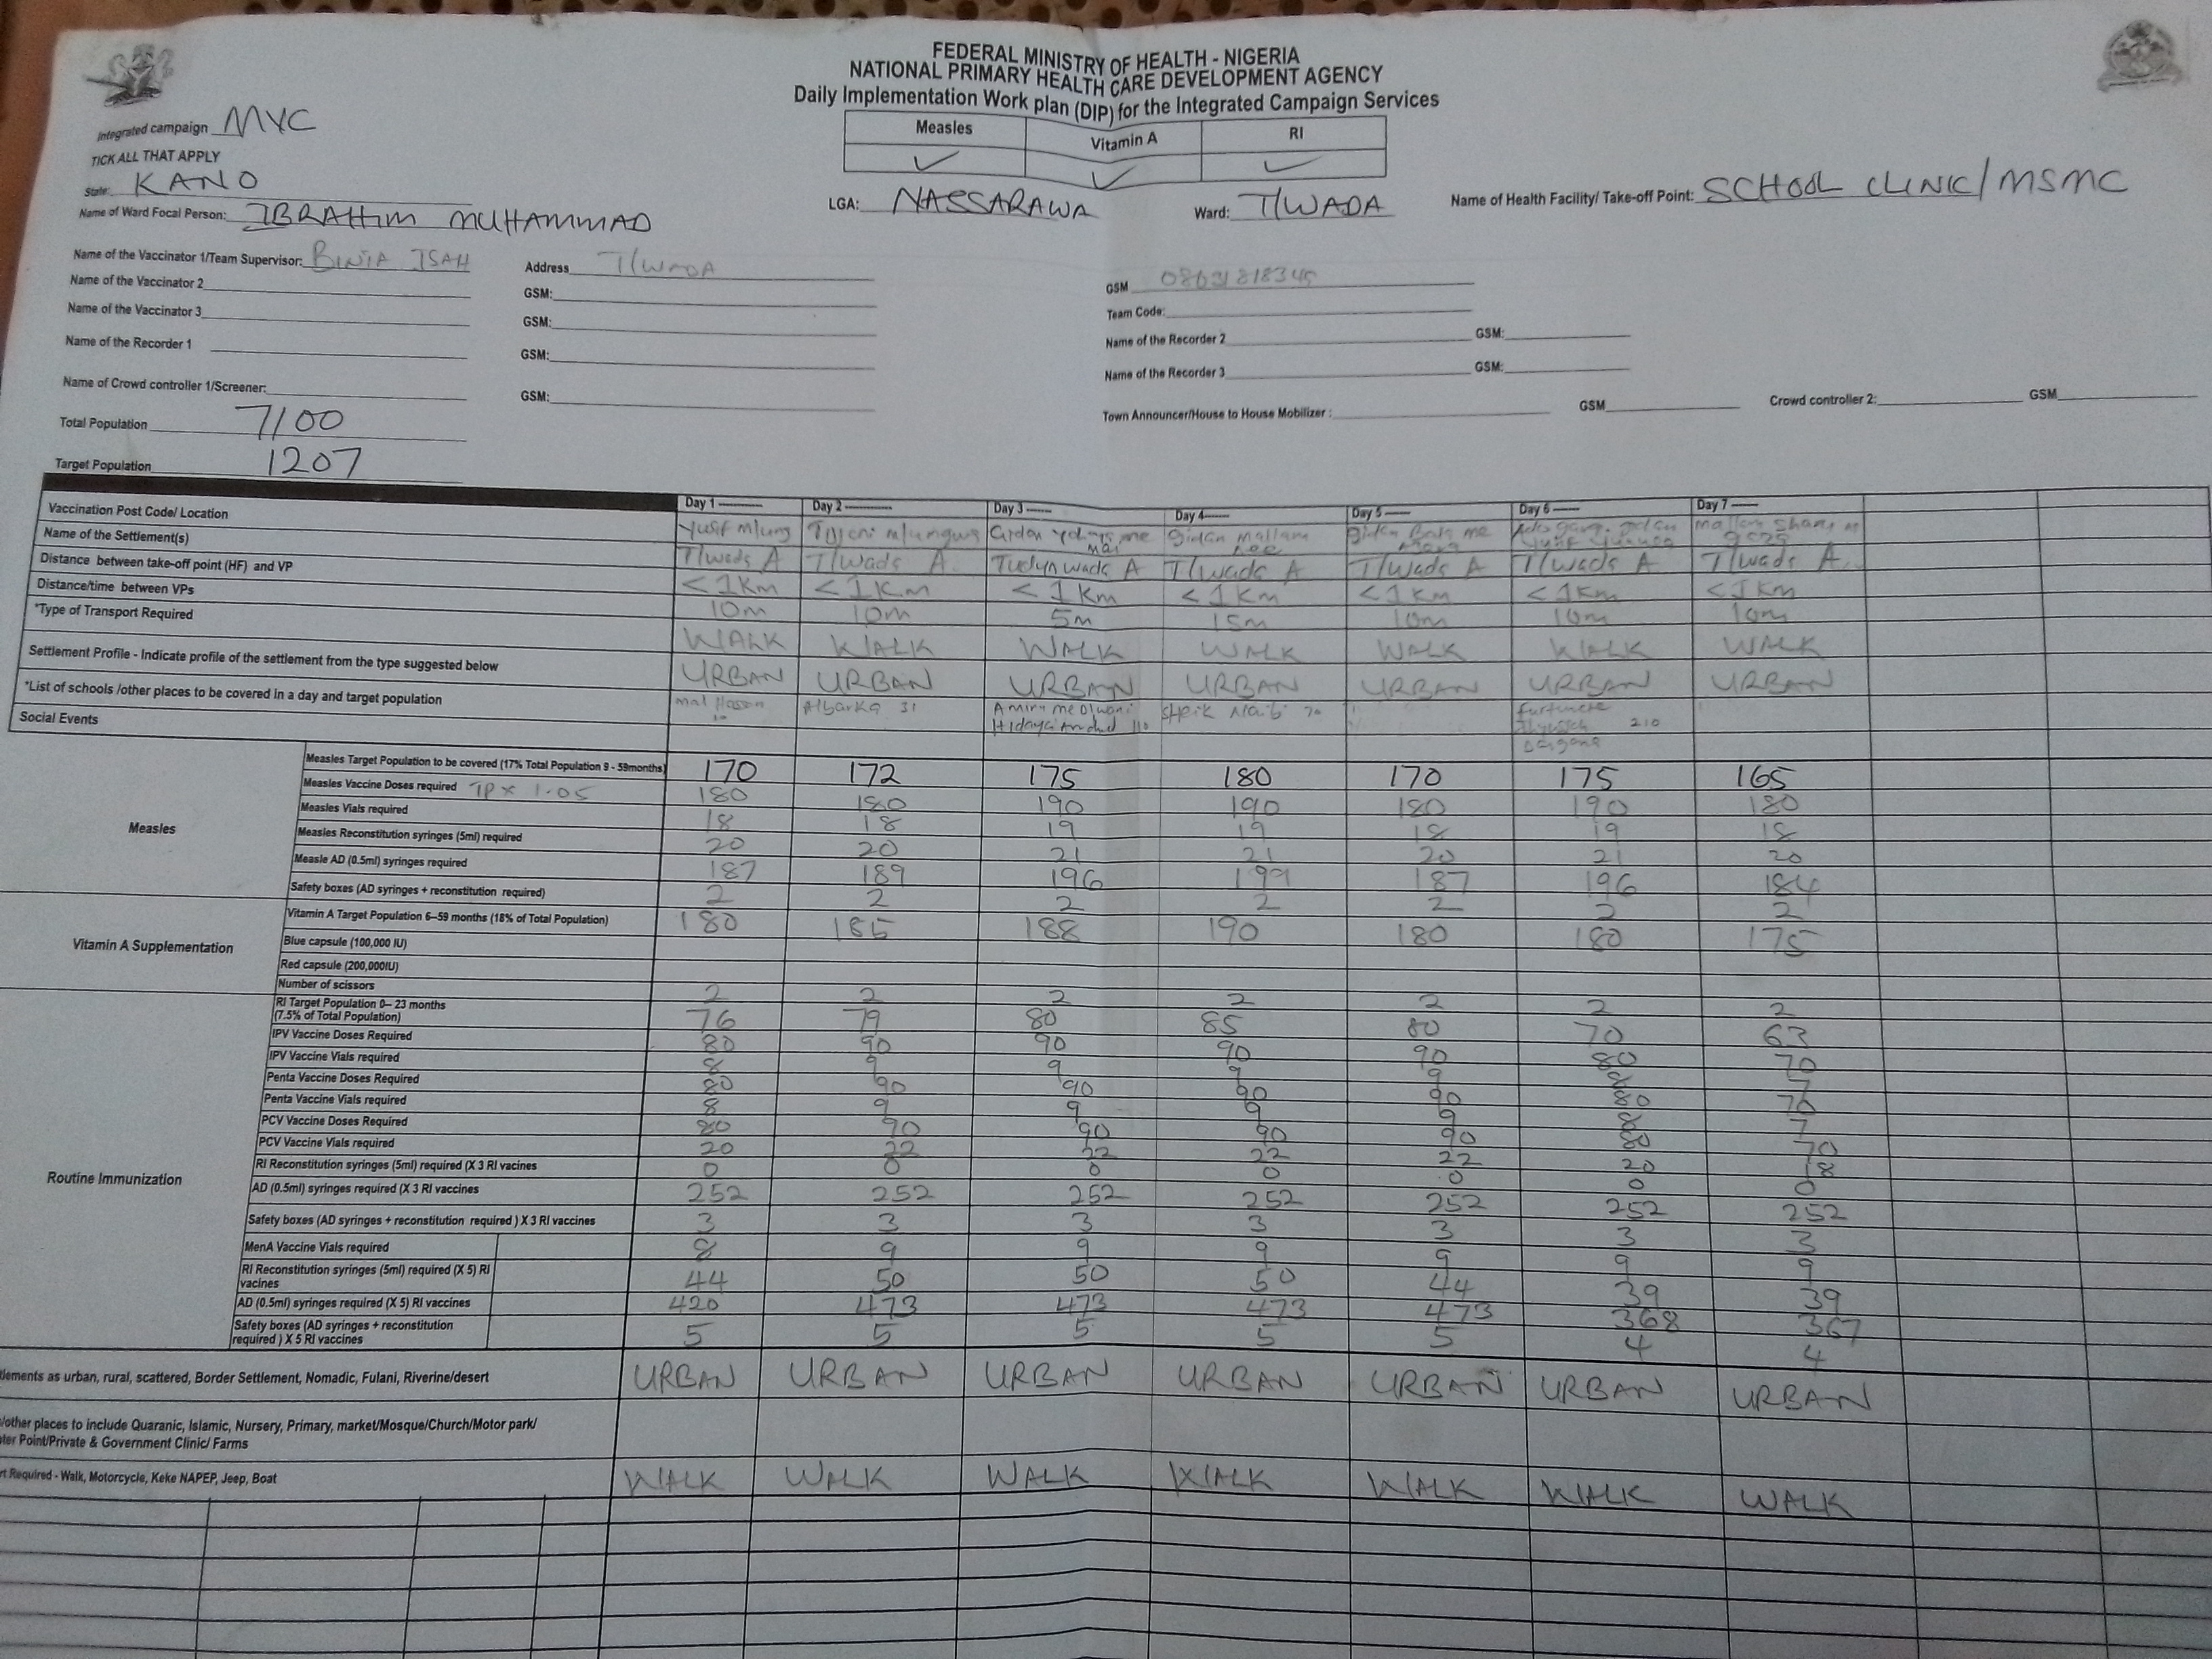 FEDERAL MINISTRY OF HEALTH - NIGERIA
NATIONAL PRIMARY HEALTH CARE DEVELOPMENT AGENCY
Daily Implementation Work plan (DIP) for the Integrated Campaign Services
Integrated campaign MVC
Measles Vitamin A RI
TICK ALL THAT APPLY
✓ ✓ ✓
State: KANO
LGA: NASSARAWA Ward: T/WADA Name of Health Facility/ Take-off Point: SCHOOL CLINIC/MSMC
Name of Ward Focal Person: IBRAHIM MUHAMMAD
Name of the Vaccinator 1/Team Supervisor: BINTA ISAH Address T/WADA GSM
Name of the Vaccinator 2 GSM: Team Code:
Name of the Vaccinator 3 GSM: Name of the Recorder 2 GSM:
Name of the Recorder 1 GSM: Name of the Recorder 3 GSM:
Name of Crowd controller 1/Screener: GSM: Town Announcer/House to House Mobilizer : GSM Crowd controller 2: GSM
Total Population 7100
Target Population 1207
Day 1 Day 2 Day 3 Day 4 Day 5 Day 6 Day 7
Vaccination Post Code/ Location Yusif m/ung
Name of the Settlement(s) T/wada A T/wada A. Tudun wada A T/wada A T/wada A T/wada A T/wada A.
Distance between take-off point (HF) and VP <1Km <1Km <1Km <1Km <1Km <1Km <1Km
Distance/time between VPs 10m 10m 5m 15m 10m 10m 10m
*Type of Transport Required WALK WALK WALK WALK WALK WALK WALK
Settlement Profile - Indicate profile of the settlement from the type suggested below URBAN URBAN URBAN URBAN URBAN URBAN URBAN
*List of schools /other places to be covered in a day and target population mal Hassan Albarka 31 Hidaya 110 Sheik 70 210
Social Events
Measles
Measles Target Population to be covered (17% Total Population 9 - 59months) 170 172 175 180 170 175 165
Measles Vaccine Doses required TP x 1.05 180 180 190 190 180 190 180
Measles Vials required 18 18 19 19 18 19 18
Measles Reconstitution syringes (5ml) required 20 20 21 21 20 21 20
Measle AD (0.5ml) syringes required 187 189 196 199 187 196 184
Safety boxes (AD syringes + reconstitution required) 2 2 2 2 2 2 2
Vitamin A Supplementation
Vitamin A Target Population 6–59 months (18% of Total Population) 180 185 188 190 180 180 175
Blue capsule (100,000 IU)
Red capsule (200,000IU)
Number of scissors 2 2 2 2 2 2 2
Routine Immunization
RI Target Population 0– 23 months
(7.5% of Total Population) 76 79 80 85 80 70 63
IPV Vaccine Doses Required 80 90 90 90 90 80 70
IPV Vaccine Vials required 8 9 9 9 9 8 7
Penta Vaccine Doses Required 80 90 90 90 90 80 70
Penta Vaccine Vials required 8 9 9 9 9 8 7
PCV Vaccine Doses Required 80 90 90 90 90 80 70
PCV Vaccine Vials required 20 22 22 22 22 20 18
RI Reconstitution syringes (5ml) required (X 3 RI vacines 0 0 0 0 0 0 0
AD (0.5ml) syringes required (X 3 RI vaccines 252 252 252 252 252 252 252
Safety boxes (AD syringes + reconstitution required ) X 3 RI vaccines 3 3 3 3 3 3 3
MenA Vaccine Vials required 8 9 9 9 9 9 9
RI Reconstitution syringes (5ml) required (X 5) RI
vacines 44 50 50 50 44 39 39
AD (0.5ml) syringes required (X 5) RI vaccines 420 473 473 473 473 368 367
Safety boxes (AD syringes + reconstitution
required ) X 5 RI vaccines 5 5 5 5 5 4 4
lements as urban, rural, scattered, Border Settlement, Nomadic, Fulani, Riverine/desert URBAN URBAN URBAN URBAN URBAN URBAN URBAN
/other places to include Quaranic, Islamic, Nursery, Primary, market/Mosque/Church/Motor park/
ter Point/Private & Government Clinic/ Farms
rt Required - Walk, Motorcycle, Keke NAPEP, Jeep, Boat WALK WALK WALK WALK WALK WALK WALK